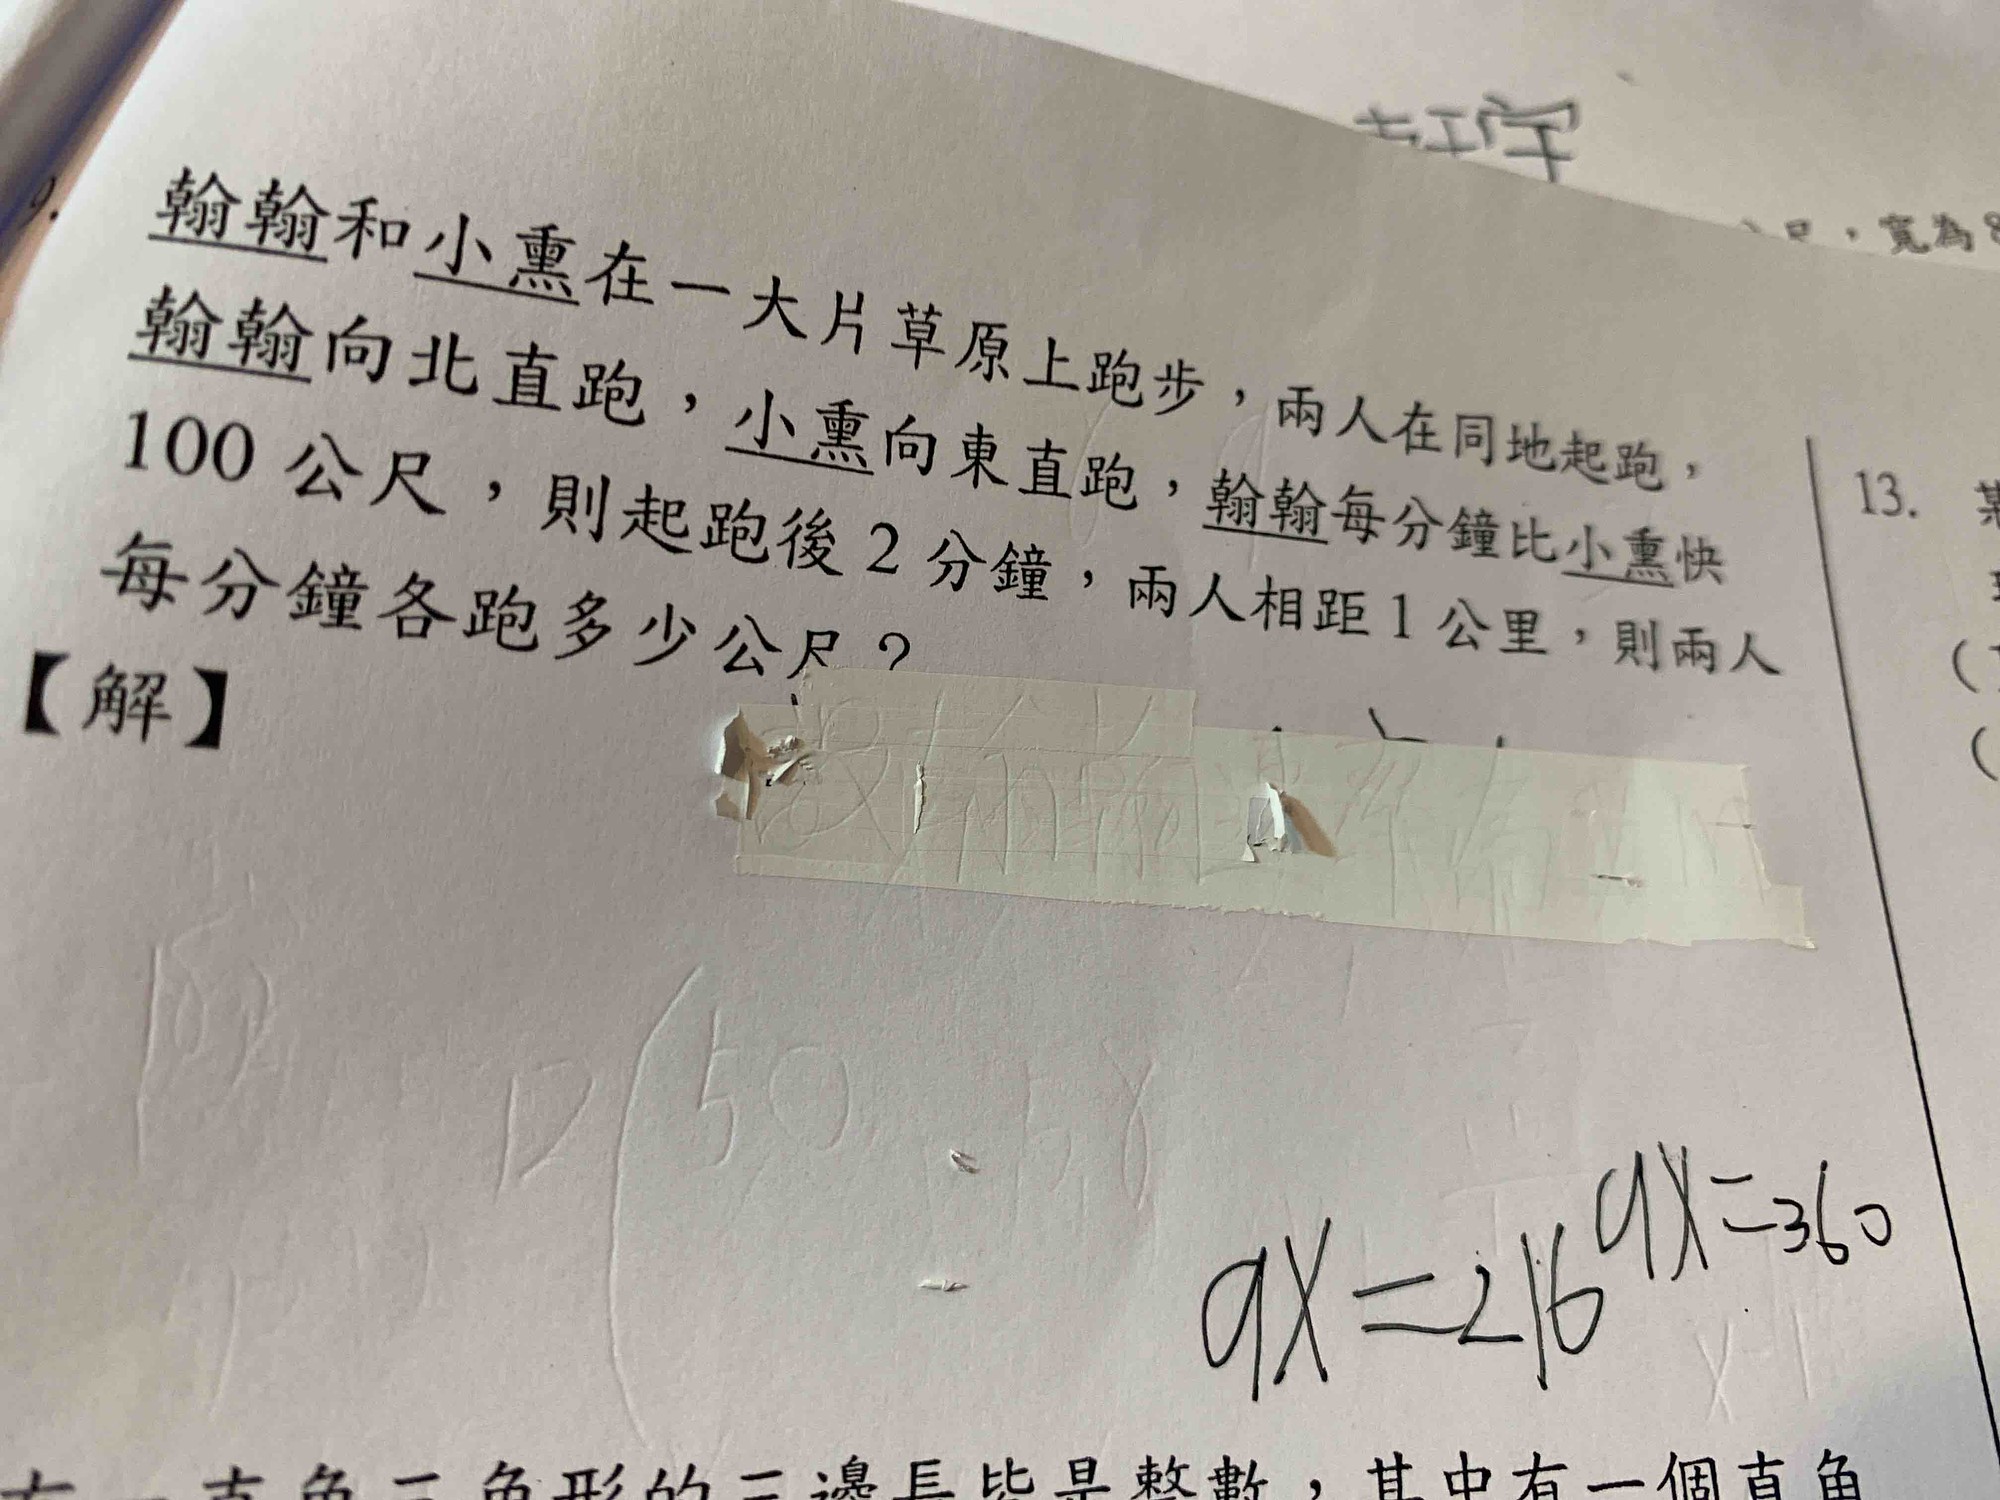 宇
尺，寬為8
翰翰和小熏在一大片草原上跑步，兩人在同地起跑，
翰翰向北直跑，小熏向東直跑，翰翰每分鐘比小熏快
100 公尺，則起跑後 2 分鐘，兩人相距 1 公里，則兩人
每分鐘各跑多少公尺？
【解】
13.
9x=360
9x=216
一直角三角形的三邊長皆是整數，其中有一個直角